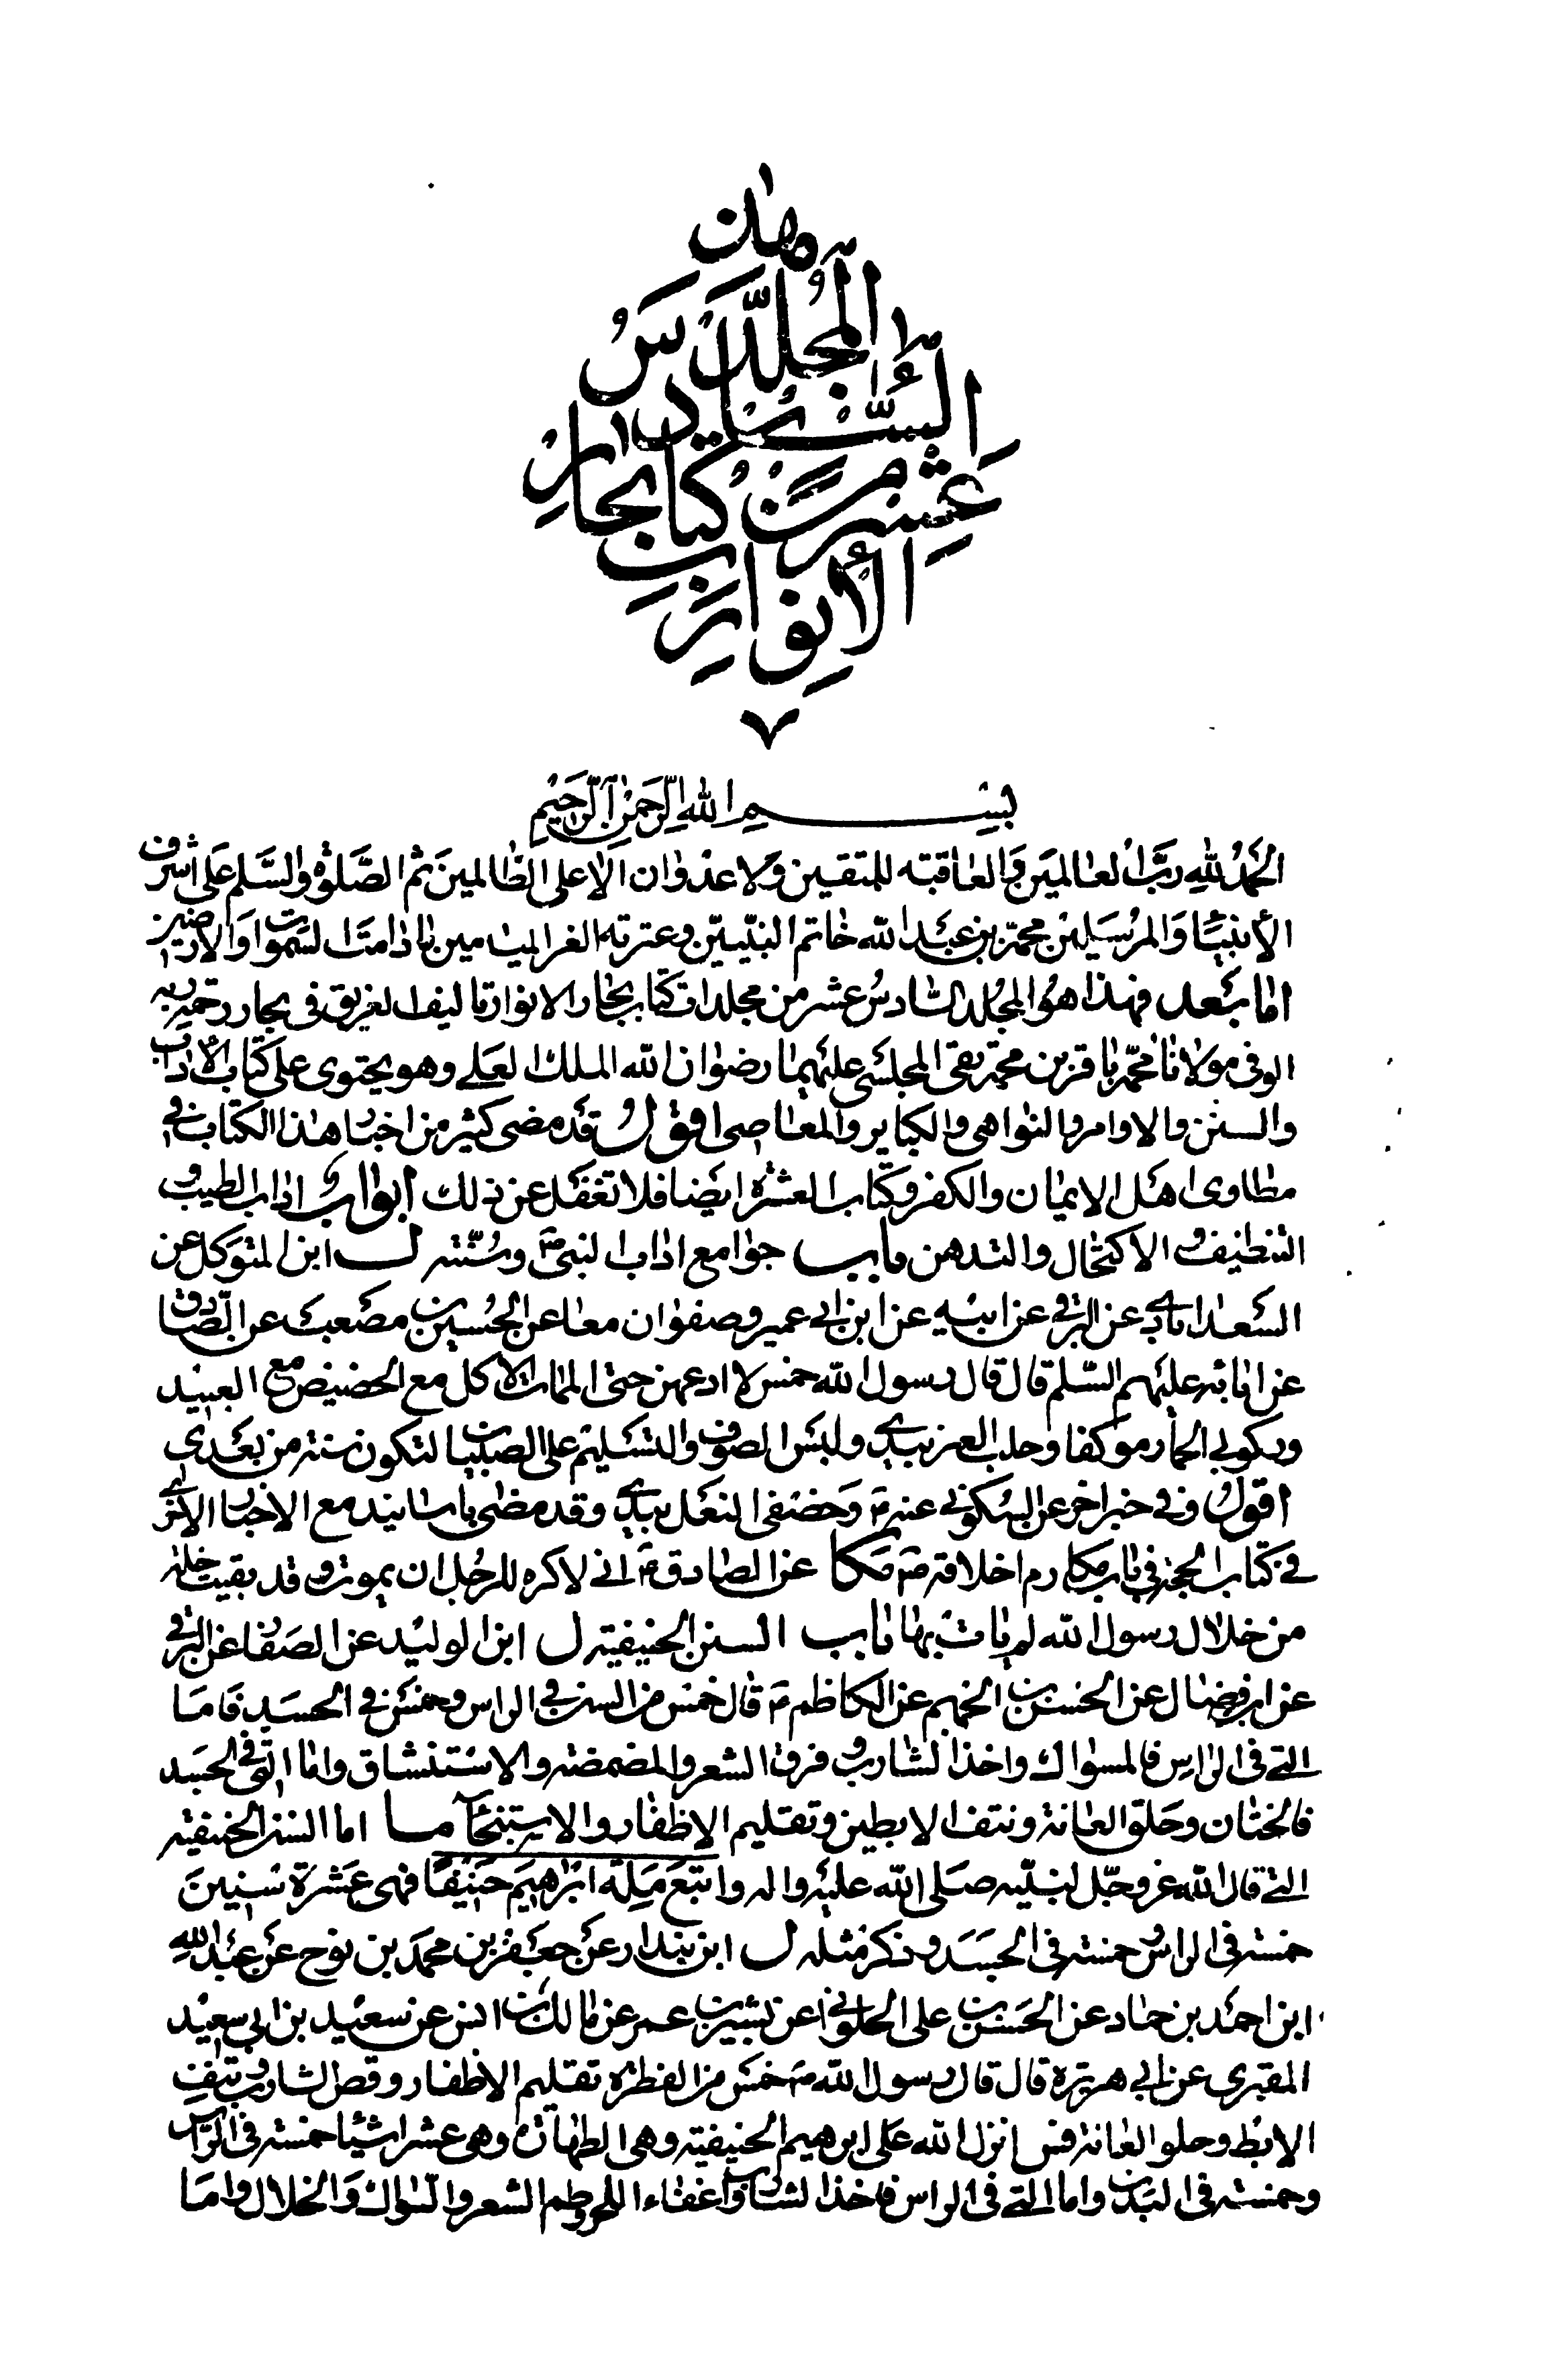 هذا
المجلد
السادس
عشر من كتاب بحار
الأنوار
٧
بسم الله الرحمن الرحيم
الحمد لله رب العالمين والعاقبة للمتقين ولا عدوان الا على الظالمين ثم الصلوة والسلم على اشرف
الأنبياء والمرسلين محمد بن عبد الله خاتم النبيين وعترته الغر الميامين ما دامت السموات والارضين
اما بعد فهذا هو المجلد السادس عشر من مجلدات كتاب بحار الانوار تاليف الغريق فى بحار رحمة ربه
الوفى مولانا محمد باقر بن محمد تقى المجلسى عليهما رضوان الله الملك العلے وهو يحتوى على كتاب الأداب
والسنن والاوامر والنواهى والكباير والمعاصى اقول قد مضى كثير من اخبار هذا الكتاب فى
مطاوى اهل الايمان والكفر وكتاب العشرة ايضا فلا تغفل عن ذلك ابواب اداب الطيب و
التنظيف و الاكتحال والتدهن باب جوامع اداب النبى ص وسنته ل ابن المتوكل عن
السعدابادے عن البرقى عن ابيه عن ابن ابى عمير وصفوان معا عن الحسين بن مصعب عن الصادق
عن ابائه عليهم السلم قال قال رسول الله خمس لا ادعهن حتى الممات الاكل مع الحضيض مع العبيد
وركوبى الحمار موكفا وحلب العنز بيدے ولبس الصوف والتسليم على الصبيان لتكون سنة من بعدى
اقول وفى خبر اخر عن السكونى عنه ع وخصفى النعل بيدے وقد مضى باسانيد مع الاخبار الاخرى
فے كتاب الحجة فى باب مكارم اخلاقه ص مكا عن الصادق ع انى لاكره للرجل ان يموت و قد بقيت خلة
من خلال رسول الله لم يات بها باب السنن الحنيفية ل ابن الوليد عن الصفار عن البرقى
عن ابن فضال عن الحسن بن الجهم عن الكاظم ع قال خمس من السنن فى الراس وخمس فى الجسد فاما
التے فى الراس فالمسواك واخذ الشارب و فرق الشعر والمضمضة والاستنشاق واما التى فى الجسد
فالختان وحلق العانة ونتف الابطين وتقليم الاظفار والاستنجاء سا اما السنن الحنيفية
التے قال الله عز وجل لنبيه صلى الله عليه واله واتبع ملة ابرهيم حنيفا فهى عشرة سنين
خمسة فى الراس و خمسة فى الجسد وذكر مثله ل ابن بندار عن جعفر بن محمد بن نوح عن عبد الله
ابن احمد بن حماد عن الحسن بن على الحلوانى عن بشير بن عمر عن مالك بن انس عن سعيد بن ابى سعيد
المقبرى عن ابى هريرة قال قال رسول الله ص خمس من الفطرة تقليم الاظفار وقص الشارب ونتف
الابط وحلق العانة فس انزل الله على ابرهيم الحنيفية وهى الطهارة وهى عشر اشياء خمسة فى الراس
وخمسة فى البدن واما التے فى الراس فاخذ الشارب واعفاء اللحى وطم الشعر والسواك والخلال واما